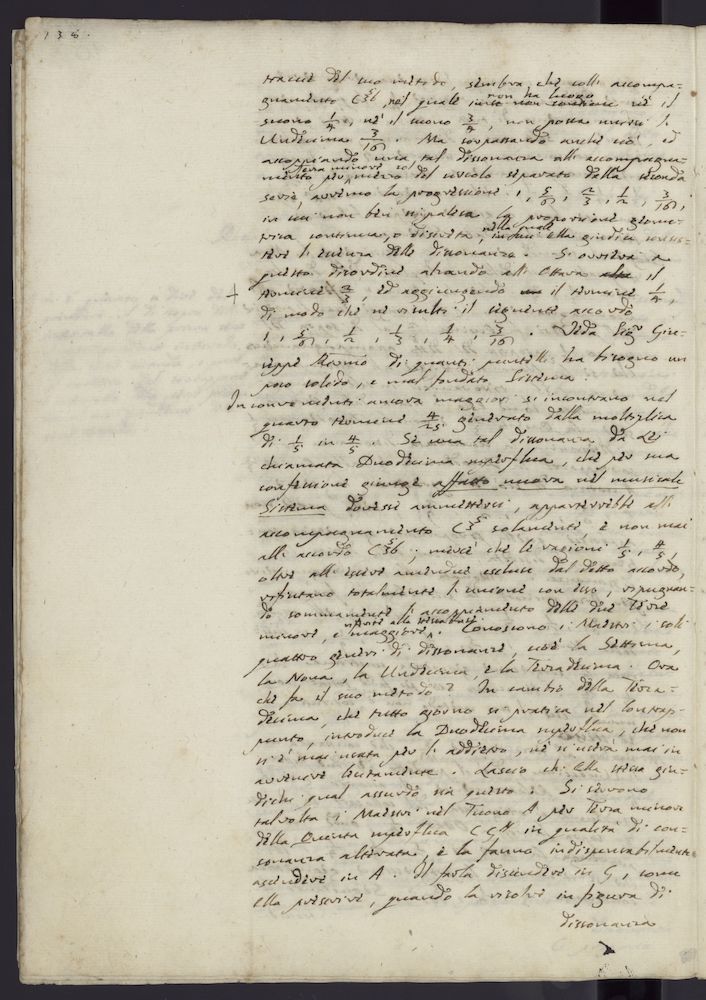 138.
traccie del suo metodo, sembra che colli accompa-
gnamento C36, nel quale non ha luogo nè il
suono 1/4, nè il suono 3/4, non possa unirsi l'
Undecima 3/16. Ma sorpassando anche ciò, ed
accoppiando una tal dissonanza all' accompagna-
mento per mezzo del vincolo separato dalla seconda
serie, avremo la progressione 1, 5/6, 2/3, 1/2, 3/16,
in cui non ben si palesa la proporzione geome-
trica continua, o discreta, nella quale ella giudica consis-
tere l'essenza delle dissonanze. Si ovvierà a
questo disordine alzando all' Ottava il
+ termine 2/3, ed aggiungendo il termine 1/4,
di modo che ne risulti il seguente accordo
1, 5/6, 1/2, 1/3, 1/4, 3/16. Veda Sigr Giu-
seppe Stimo di quanti puntelli ha bisogno un
poco solido, e mal fondato Sistema.
Inconvenienti ancora maggiori s'incontrano nel
quarto termine 4/25 generato dalla moltiplica
di 1/5 in 4/5. Se una tal dissonanza da Lei
chiamata Duodecima superflua, che per sua
confessione giunge affatto nuova nel musicale
Sistema dovesse ammettersi, apparterrebbe all'
accompagnamento C35 solamente, e non mai
all' accordo C36; mercè che le ragioni 1/5, 4/5,
oltre all' essere amendue escluse dal detto accordo,
rifiutano totalmente l'unione con esso, ripugnan-
do sommamente l'accoppiamento delle due Terze
minore, e maggiore riferite alla stessa base. Conoscono i Maestri i soli
quattro generi di dissonanze, cioè la Settima,
la Nona, la Undecima, e la Terzadecima. Ora
che fa il suo metodo? In cambio della Terza-
decima, che tutto giorno si pratica nel Contrap-
punto, introduce la Duodecima superflua, che non
si è mai usata per l'addietro, nè si userà mai in
avvenire lecitamente. Lascio che Ella stessa giu-
dichi qual assurdo sia questo. Si servono
talvolta i Maestri nel Tuono A per Terza minore
della Quinta superflua C G# in qualità di con-
sonanza alterata, e la fanno indispensabilmente
ascendere in A. Il farla discendere in G, come
Ella prescrive, quando la risolve in figura di
dissonanza